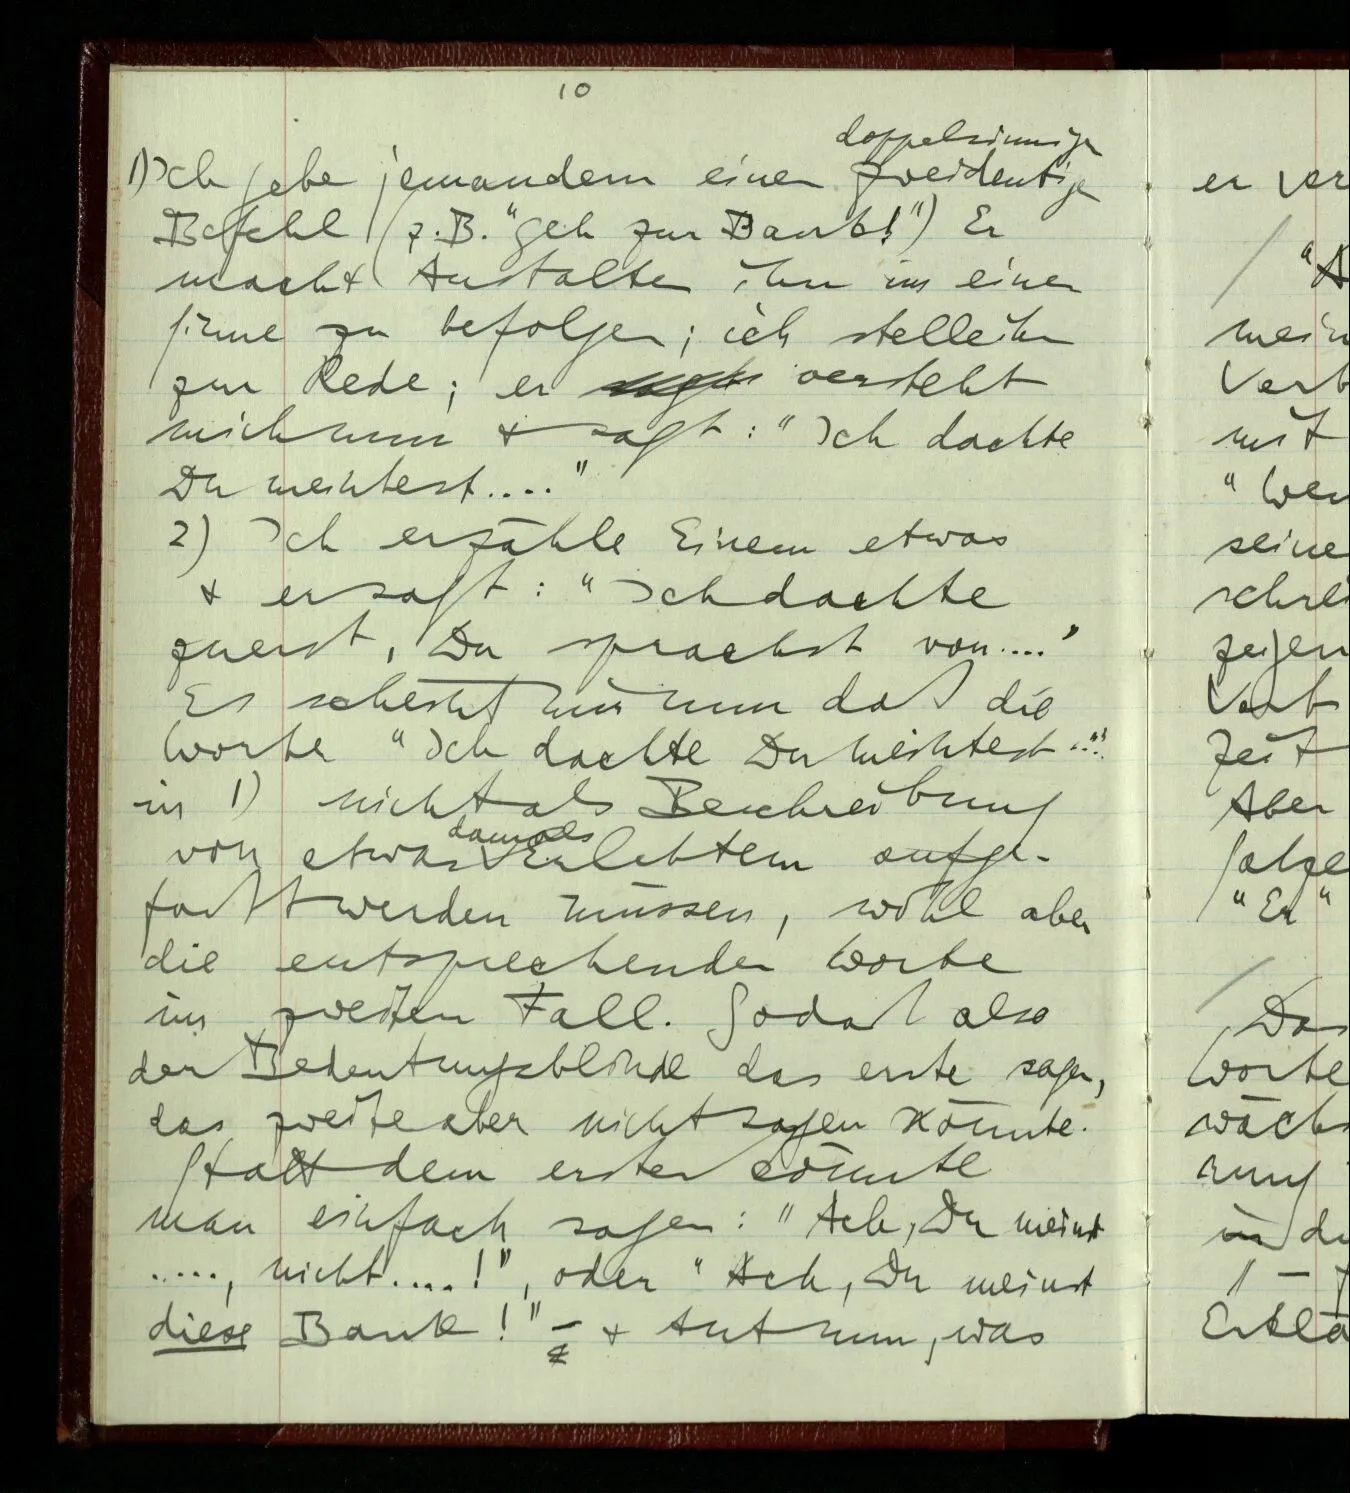 10
doppelsinnigen
1) Ich gebe jemandem einen zweideutigen
Befehl (z.B. "geh zur Bank!") Er
macht Anstalten ihn in einem
Sinne zu befolgen; ich stelle ihn
zur Rede; er versteht
mich nun & sagt: "Ich dachte
Du meintest...."
2) Ich erzähle Einem etwas
& er sagt: "Ich dachte
zuerst, Du sprachst von...."
Es scheint mir nun daß die
Worte "Ich dachte Du meintest..."
in 1) nicht als Beschreibung
damals
von etwas Erlebtem aufge-
faßt werden müssen, wohl aber
die entsprechenden Worte
im zweiten Fall. Sodaß also
der Bedeutungsblinde das erste sagen,
das zweite aber nicht sagen könnte.
Statt dem ersten könnte
man einfach sagen: "Ach, Du meinst
....., nicht....!", oder "Ach, Du meinst
diese Bank!" – & tut nun, was
er
"A
mein
Verb
mit
"Wen
seine
schrei
zeigen
Verb
Zeit
Aber
folge
"Er"
Das
Worte
wäch
rung
in d
Erklä